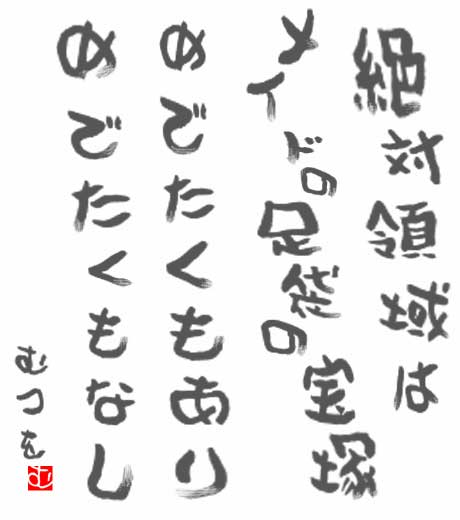 絶対領域は
メイドの足袋の宝塚
めでたくもあり
めでたくもなし
むつを
む